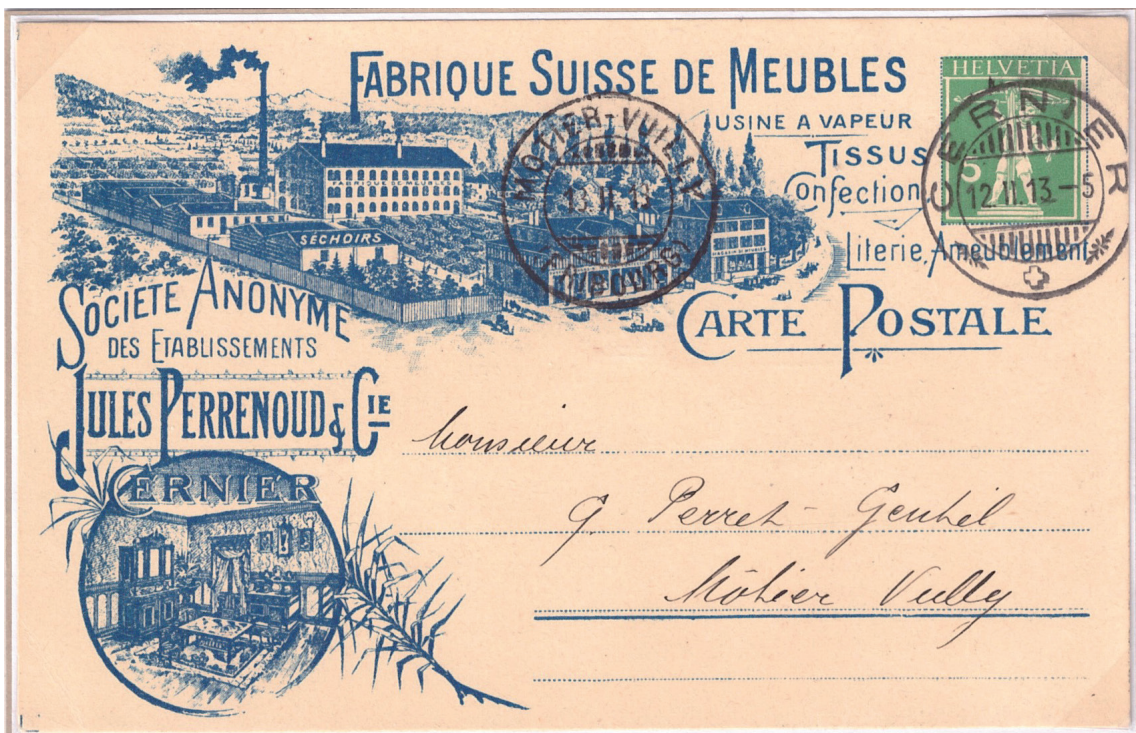 FABRIQUE SUISSE DE MEUBLES
USINE A VAPEUR
TISSUS
Confection
Literie, Ameublement
CARTE POSTALE
HELVETIA
5
CERNIER
12.II.13.–5
MOTIER-VULLY
13.II.13
FRIBOURG
FABRIQUE DE MEUBLES
SECHOIRS
SOCIETE ANONYME
DES ETABLISSEMENTS
JULES PERRENOUD & CIE
CERNIER
Monsieur
G. Perret-Gentil
Môtier Vully